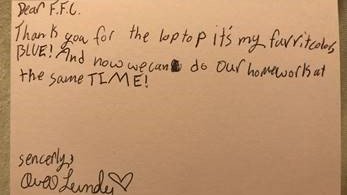 Dear F.F.C.
Thank you for the laptop it's my favritcolor
BLUE! And now we can do our homeworks at
the same TIME!
sencerly,